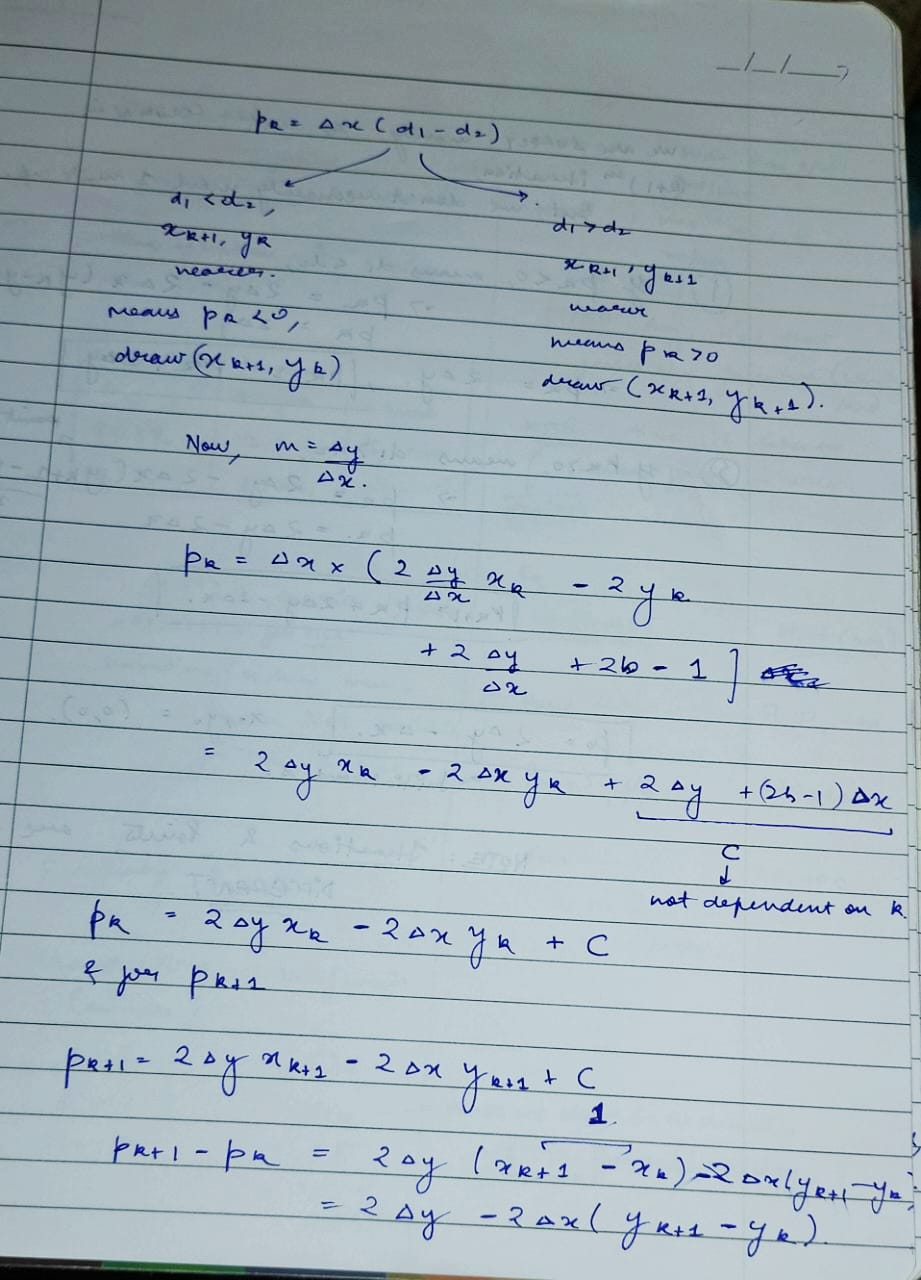 _/_/__
pₖ = Δx (d₁ - d₂)
d₁ < d₂,
xₖ₊₁, yₖ
nearer.
means pₖ < 0,
draw (xₖ₊₁, yₖ)
d₁ > d₂
xₖ₊₁, yₖ₊₁
nearer
means pₖ > 0
draw (xₖ₊₁, yₖ₊₁).
Now, m = Δy/Δx.
pₖ = Δx × ( 2 Δy/Δx xₖ - 2 yₖ
+ 2 Δy/Δx + 2b - 1 ]
= 2 Δy xₖ - 2 Δx yₖ + 2 Δy + (2b-1) Δx
C
↓
not dependent on k.
pₖ = 2 Δy xₖ - 2 Δx yₖ + C
& for pₖ₊₁
pₖ₊₁ = 2 Δy xₖ₊₁ - 2 Δx yₖ₊₁ + C
1.
pₖ₊₁ - pₖ = 2 Δy (xₖ₊₁ - xₖ) - 2 Δx (yₖ₊₁ - yₖ)
= 2 Δy - 2 Δx ( yₖ₊₁ - yₖ).